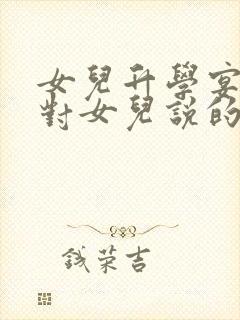 女兒升學宴
對女兒說的
錢荣吉